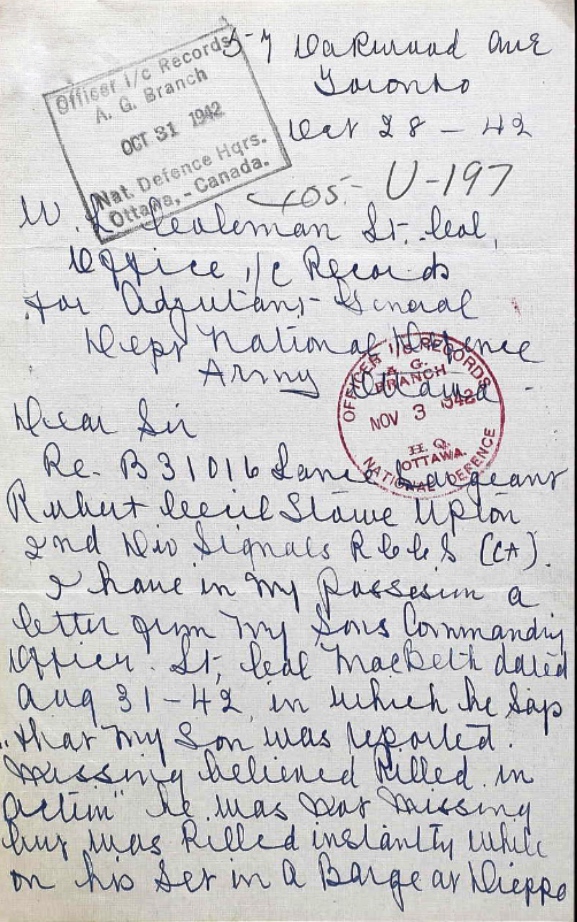 57 Oakwood Ave
Toronto
Oct 28 - 42
Officer I/c Records
A. G. Branch
OCT 31 1942
Nat. Defence Hqrs.
Ottawa, - Canada.
405- U-197
W. L. Coleman Lt. Col,
Office I/c Records
for Adjutant General
Dept National Defence
Army Ottawa -
OFFICER I/c RECORDS
A. G.
BRANCH
NOV 3 1942
H. Q.
OTTAWA.
NATIONAL DEFENCE
Dear Sir
Re- B31016 Lance Sargeant
Robert Cecil Stowe Upton
2nd Div Signals R.C.C.S (CA).
I have in my possesion a
letter from my Sons Commanding
Officer. Lt, Col MacBeth dated
Aug 31-42 in which he says
"that my Son was reported.
Missing believed Killed in
action" he was not missing
but was Killed instantly while
on his Set in a Barge at Dieppe